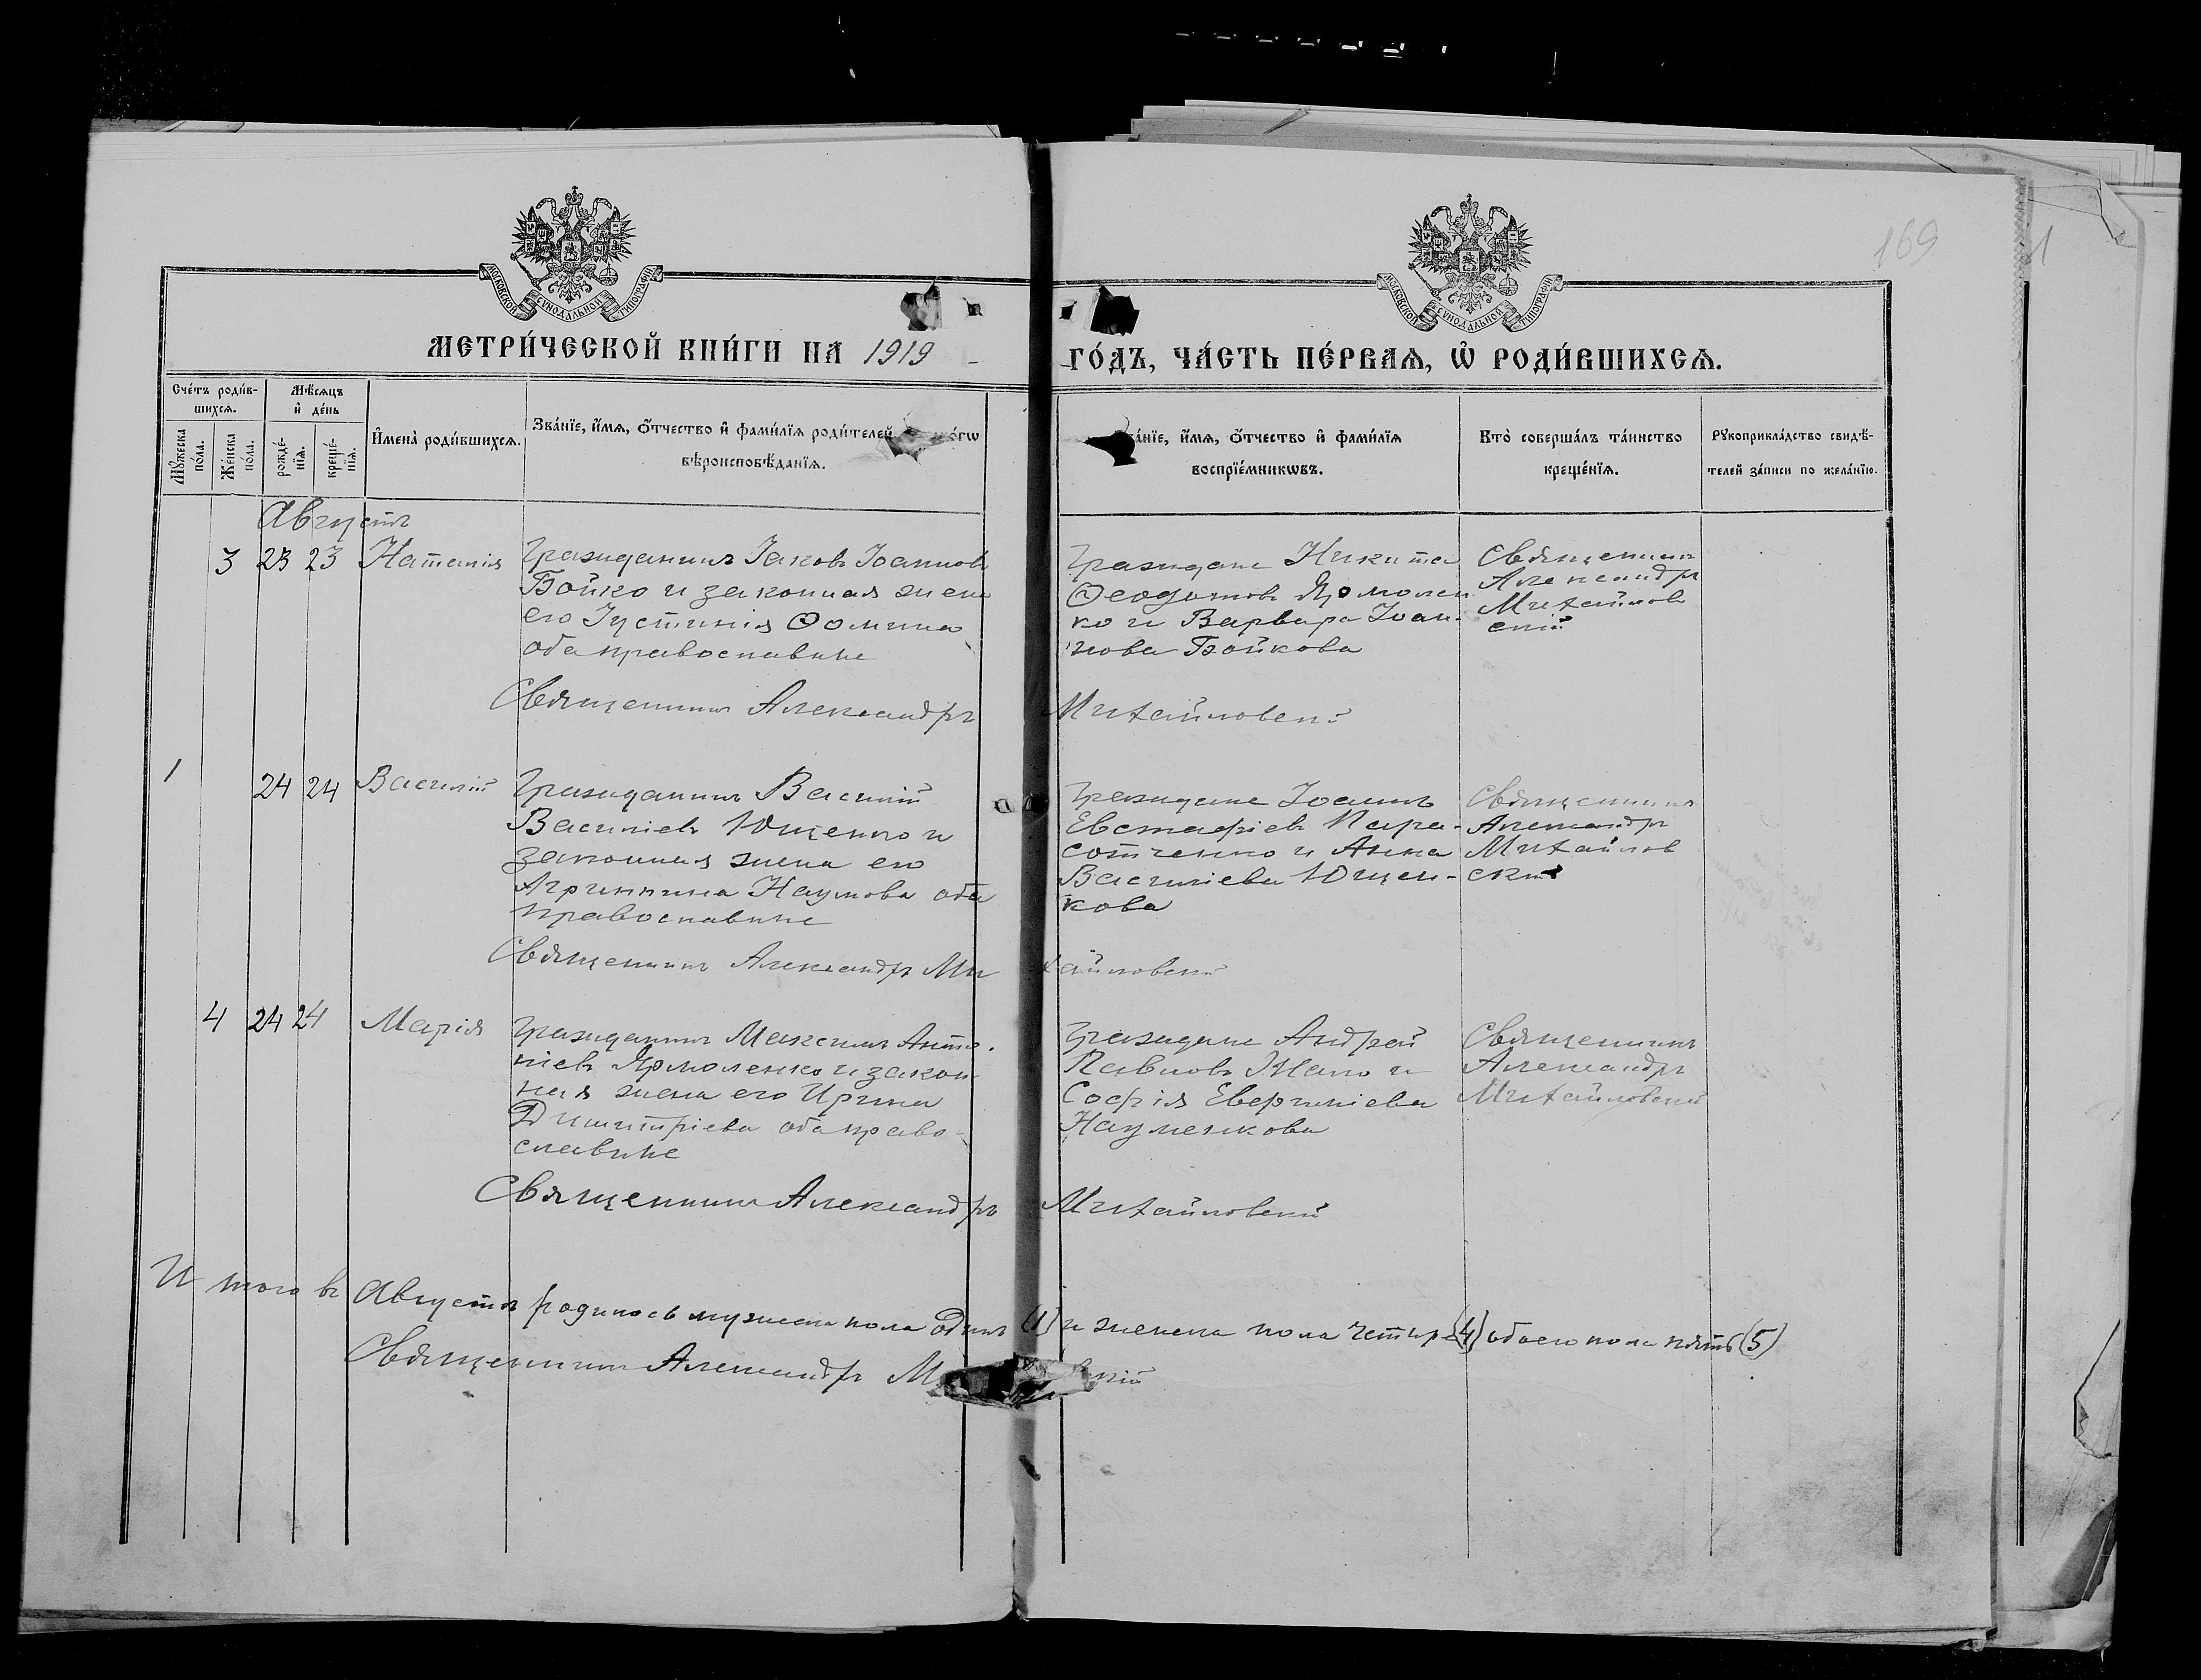 169
1
МОСКОВСКОЙ СѴНОДАЛЬНОЙ ТИПОГРАФІИ
МОСКОВСКОЙ СѴНОДАЛЬНОЙ ТИПОГРАФІИ
МЕТРИ́ЧЕСКОЙ КНИ́ГИ НА̀ 1919
ГО́ДЪ, ЧА́СТЬ ПЕ́РВАѦ, Ѽ РОДИ́ВШИХСѦ.
Сче́тъ роди́в-
шихсѧ.
Мѣ́сѧцъ
и҆ де́нь
Мꙋ́жеска
по́ла.
Же́нска
по́ла.
рожде́-
нїѧ.
креще́-
нїѧ.
И҆мена̀ роди́вшихсѧ.
Зва́нїе, и҆́мѧ, ѻ҆́тчество и҆ фами́лїѧ роди́телей
о́гѡ
вѣроисповѣ́данїѧ.
а́нїе, и҆́мѧ, ѻ҆́тчество и҆ фами́лїѧ
воспрїе́мникѡвъ.
Кто̀ соверша́лъ та́инство
креще́нїѧ.
Рꙋкоприкла́дство свидѣ́-
телей за́писи по жела́нїю.
Августъ
3 23 23 Наталія
Гражданинъ Іаковъ Іоанновъ
Бойко и законная жена
его Іустинія Ѳомина
оба православные
Граждане Никита
Ѳеодотовъ Ярмолен
ко и Варвара Іоан-
нова Бойкова
Священникъ
Александръ
Михайлов
скій
Священникъ Александръ Михайловскій
1 24 24 Василій
Гражданинъ Василій
Василіевъ Ющенко и
законная жена его
Агриппина Наумова оба
православные
Граждане Іоаннъ
Евстафіевъ Пара-
сотченко и Анна
Василіева Ющен-
кова
Священникъ
Александръ
Михайлов
скій
Священникъ Александръ Михайловскій
4 24 24 Марія
Гражданинъ Максимъ Анто-
ніевъ Ярмоленко и закон-
ная жена его Ирина
Димитріева оба право-
славные
Граждане Андрей
Павловъ и
Софія Евергиніева
Науменкова
Священникъ
Александръ
Михайловскій
Священникъ Александръ Михайловскій
И того въ Августѣ родилось мужеска пола одинъ (1) и женска пола четыре (4) обоего пола пять (5)
Священникъ Александръ М вскій